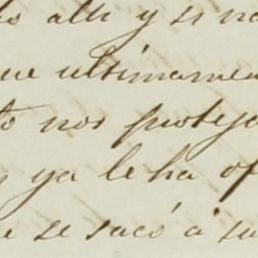 allí y si no
ue ultimamen
to nos proteja
ya le ha of
e se sacó á su